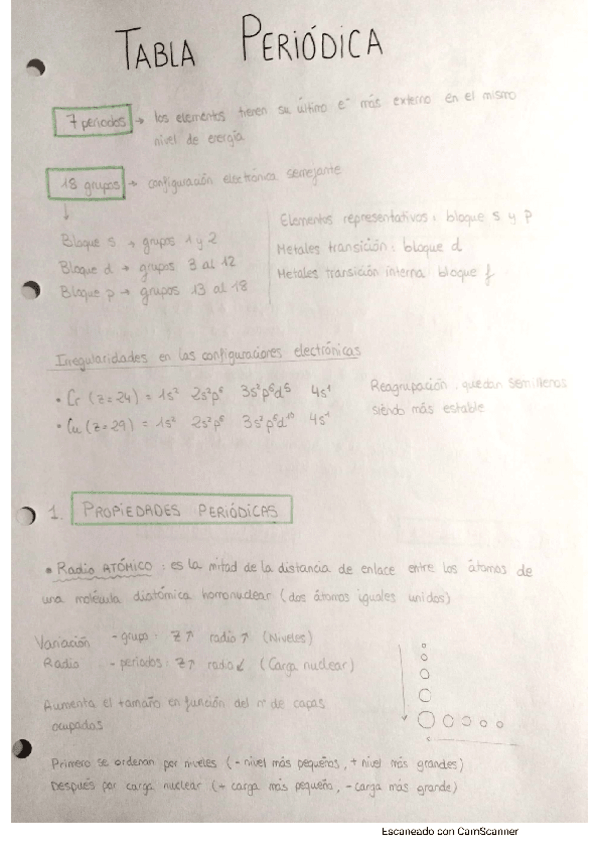 TABLA PERIÓDICA
7 periodos → los elementos tienen su último e⁻ más externo en el mismo
nivel de energía
18 grupos → configuración electrónica semejante
↓
Bloque s → grupos 1 y 2
Bloque d → grupos 3 al 12
Bloque p → grupos 13 al 18
Elementos representativos: bloque s y p
Metales transición: bloque d
Metales transición interna: bloque f
Irregularidades en las configuraciones electrónicas
• Cr (z=24) = 1s² 2s²p⁶ 3s²p⁶d⁵ 4s¹
• Cu (z=29) = 1s² 2s²p⁶ 3s²p⁶d¹⁰ 4s¹
Reagrupación, quedan semillenos
siendo más estable
1. PROPIEDADES PERIÓDICAS
• Radio ATÓMICO: es la mitad de la distancia de enlace entre los átomos de
una molécula diatómica homonuclear (dos átomos iguales unidos)
Variación - grupo: Z↗ radio↗ (Niveles)
Radio - periodos: Z↗ radio↙ (Carga nuclear)
Aumenta el tamaño en función del nº de capas
ocupadas
Primero se ordenan por niveles (- nivel más pequeños, + nivel más grandes)
Después por carga nuclear (+ carga más pequeña, - carga más grande)
Escaneado con CamScanner